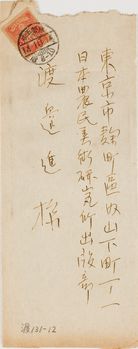 東京市麹町區内山下町一ノ一
日本農民美術研究所出版部
渡邊進様
渡131-12